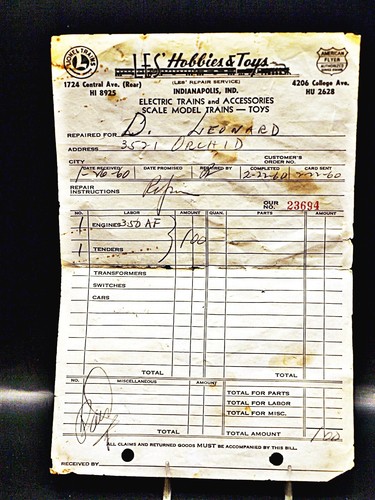 LIONEL TRAINS
L
LES' Hobbies & Toys
AMERICAN FLYER
AUTHORIZED
(LES' REPAIR SERVICE)
1724 Central Ave. (Rear) INDIANAPOLIS, IND. 4206 College Ave.
HI 8925 HU 2628
ELECTRIC TRAINS and ACCESSORIES
SCALE MODEL TRAINS — TOYS
REPAIRED FOR D. LEONARD
ADDRESS 3521 ORCHID
CITY CUSTOMER'S ORDER NO.
DATE RECEIVED DATE PROMISED REPAIRED BY COMPLETED CARD SENT
1-26-60 2-22-60 2-22-60
REPAIR INSTRUCTIONS
OUR NO. 23694
NO. LABOR AMOUNT QUAN. PARTS AMOUNT
1 ENGINES 350 AF
1 TENDERS 1 00
TRANSFORMERS
SWITCHES
CARS
TOTAL TOTAL
NO. MISCELLANEOUS AMOUNT
TOTAL FOR PARTS
TOTAL FOR LABOR
Paid TOTAL FOR MISC.
TOTAL TOTAL AMOUNT 1 00
ALL CLAIMS AND RETURNED GOODS MUST BE ACCOMPANIED BY THIS BILL.
RECEIVED BY